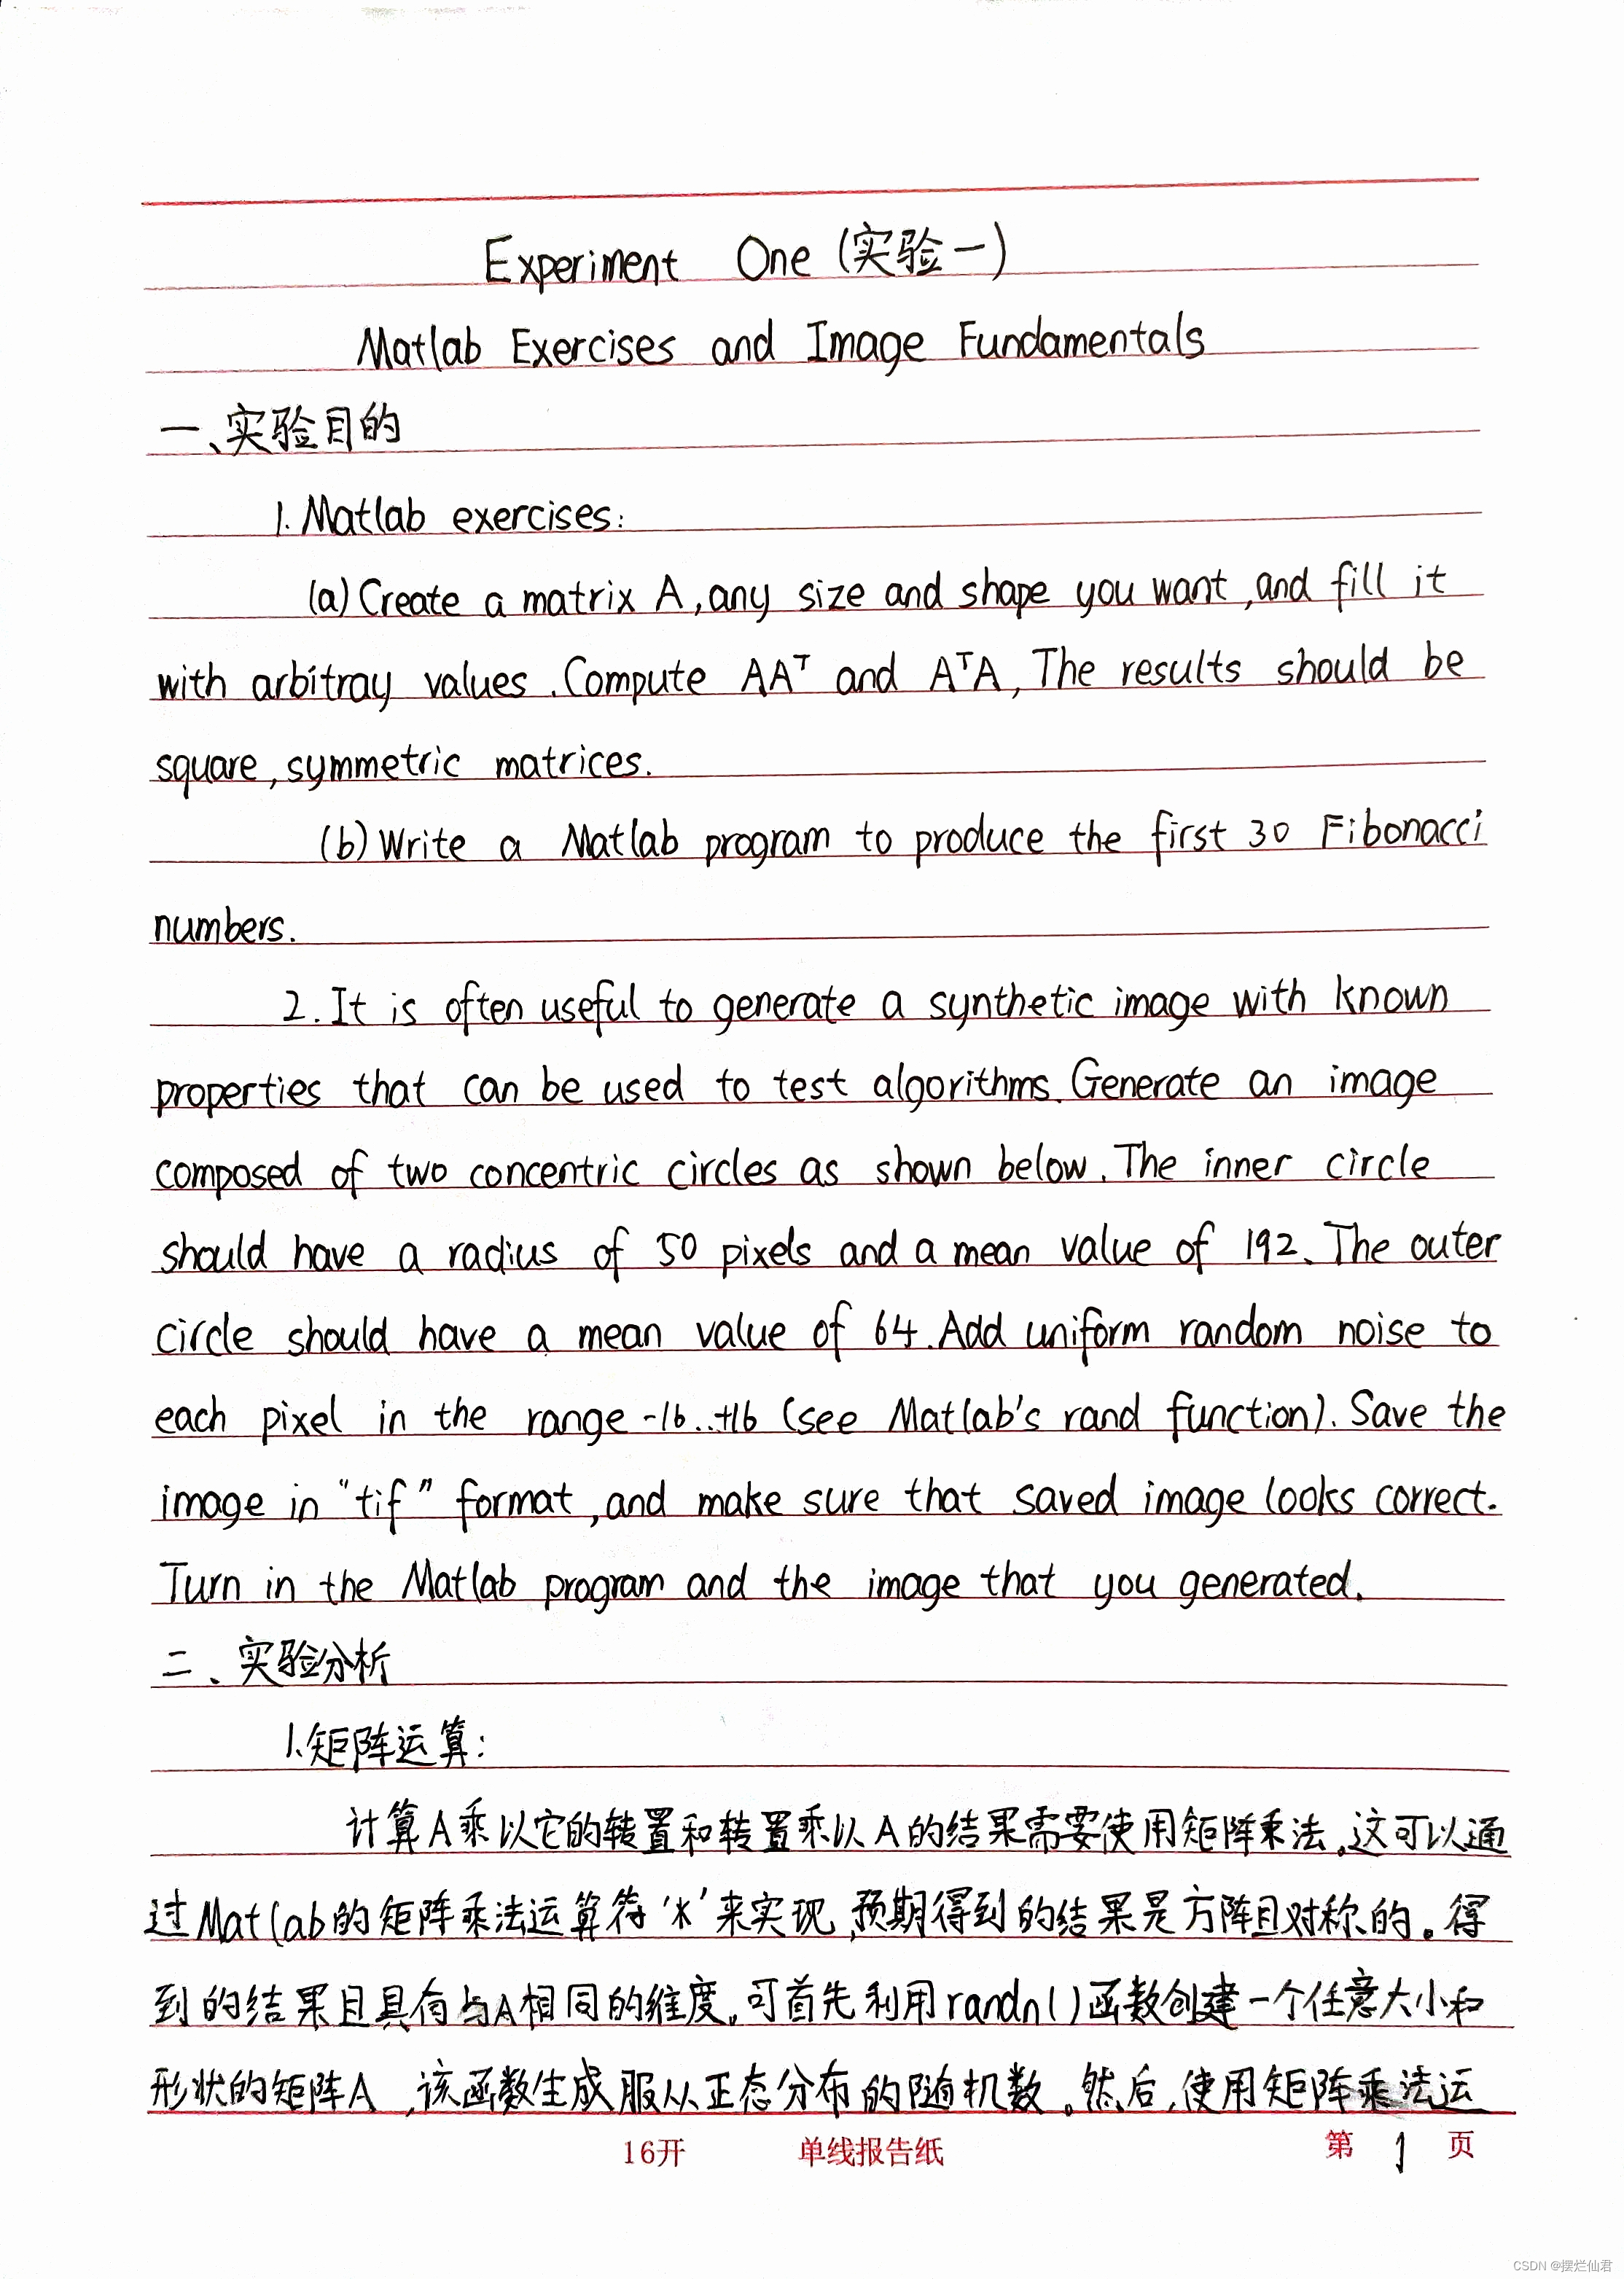 Experiment One (实验一)
Matlab Exercises and Image Fundamentals
一、实验目的
1. Matlab exercises:
(a) Create a matrix A, any size and shape you want, and fill it
with arbitray values. Compute AAᵀ and AᵀA, The results should be
square, symmetric matrices.
(b) Write a Matlab program to produce the first 30 Fibonacci
numbers.
2. It is often useful to generate a synthetic image with known
properties that can be used to test algorithms. Generate an image
composed of two concentric circles as shown below. The inner circle
should have a radius of 50 pixels and a mean value of 192. The outer
circle should have a mean value of 64. Add uniform random noise to
each pixel in the range -16..+16 (see Matlab's rand function). Save the
image in "tif" format, and make sure that saved image looks correct.
Turn in the Matlab program and the image that you generated.
二、实验分析
1.矩阵运算:
计算A乘以它的转置和转置乘以A的结果需要使用矩阵乘法。这可以通
过Matlab的矩阵乘法运算符'*'来实现,预期得到的结果是方阵且对称的。得
到的结果且具有与A相同的维度。可首先利用randn()函数创建一个任意大小和
形状的矩阵A,该函数生成服从正态分布的随机数。然后,使用矩阵乘法运
16开 单线报告纸 第 1 页
CSDN @摆烂仙君